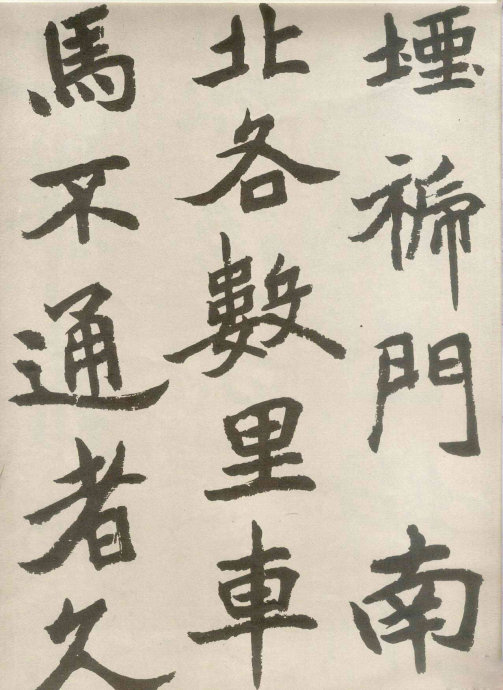 堙門南
北各數里車
馬不通者久